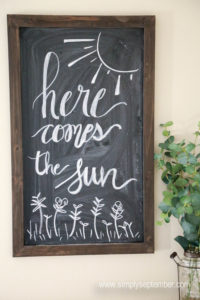 here
comes
the sun
www.simplyseptember.com